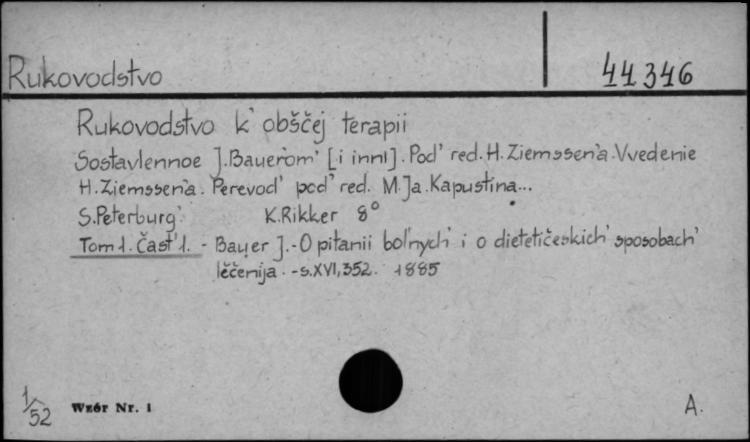 Rukovodstvo 44346
Rukovodstvo k' obščej terapii
Sostavlennoe J. Bauerom' [i inni]. Pod' red. H. Ziemssen'a. Vvedenie
H. Ziemssen'a. Perevod' pod' red. M. Ja. Kapustina...
S. Peterburg' K. Rikker 8°
Tom 1. Čast' 1. - Bauer J. - O pitanii bol'nych' i o dietetičeskich' sposobach'
lěčenija. - s. XVI, 352. 1885
1/52 Wzór Nr. 1 A.